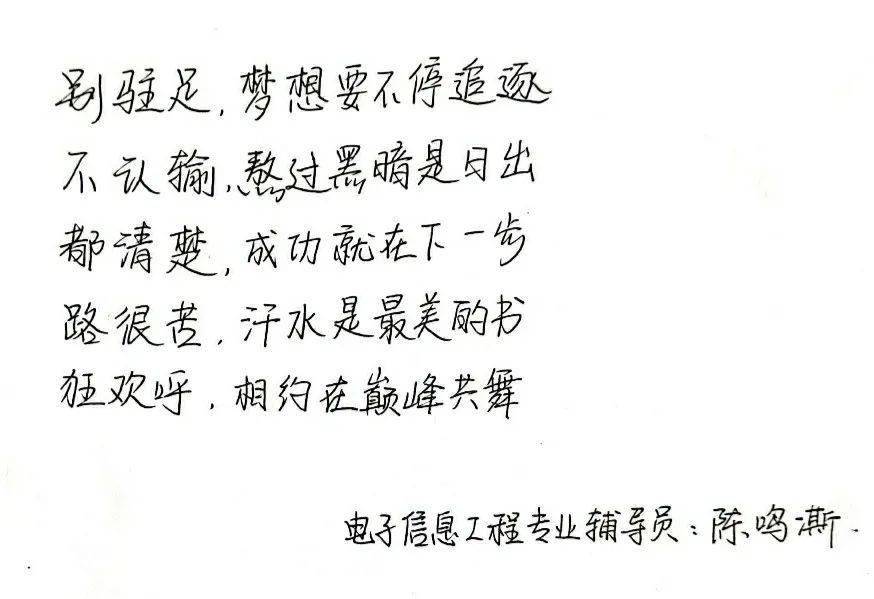 别驻足,梦想要不停追逐
不认输,熬过黑暗是日出
都清楚,成功就在下一步
路很苦,汗水是最美的书
狂欢呼,相约在巅峰共舞
电子信息工程专业辅导员:陈鸣澌.